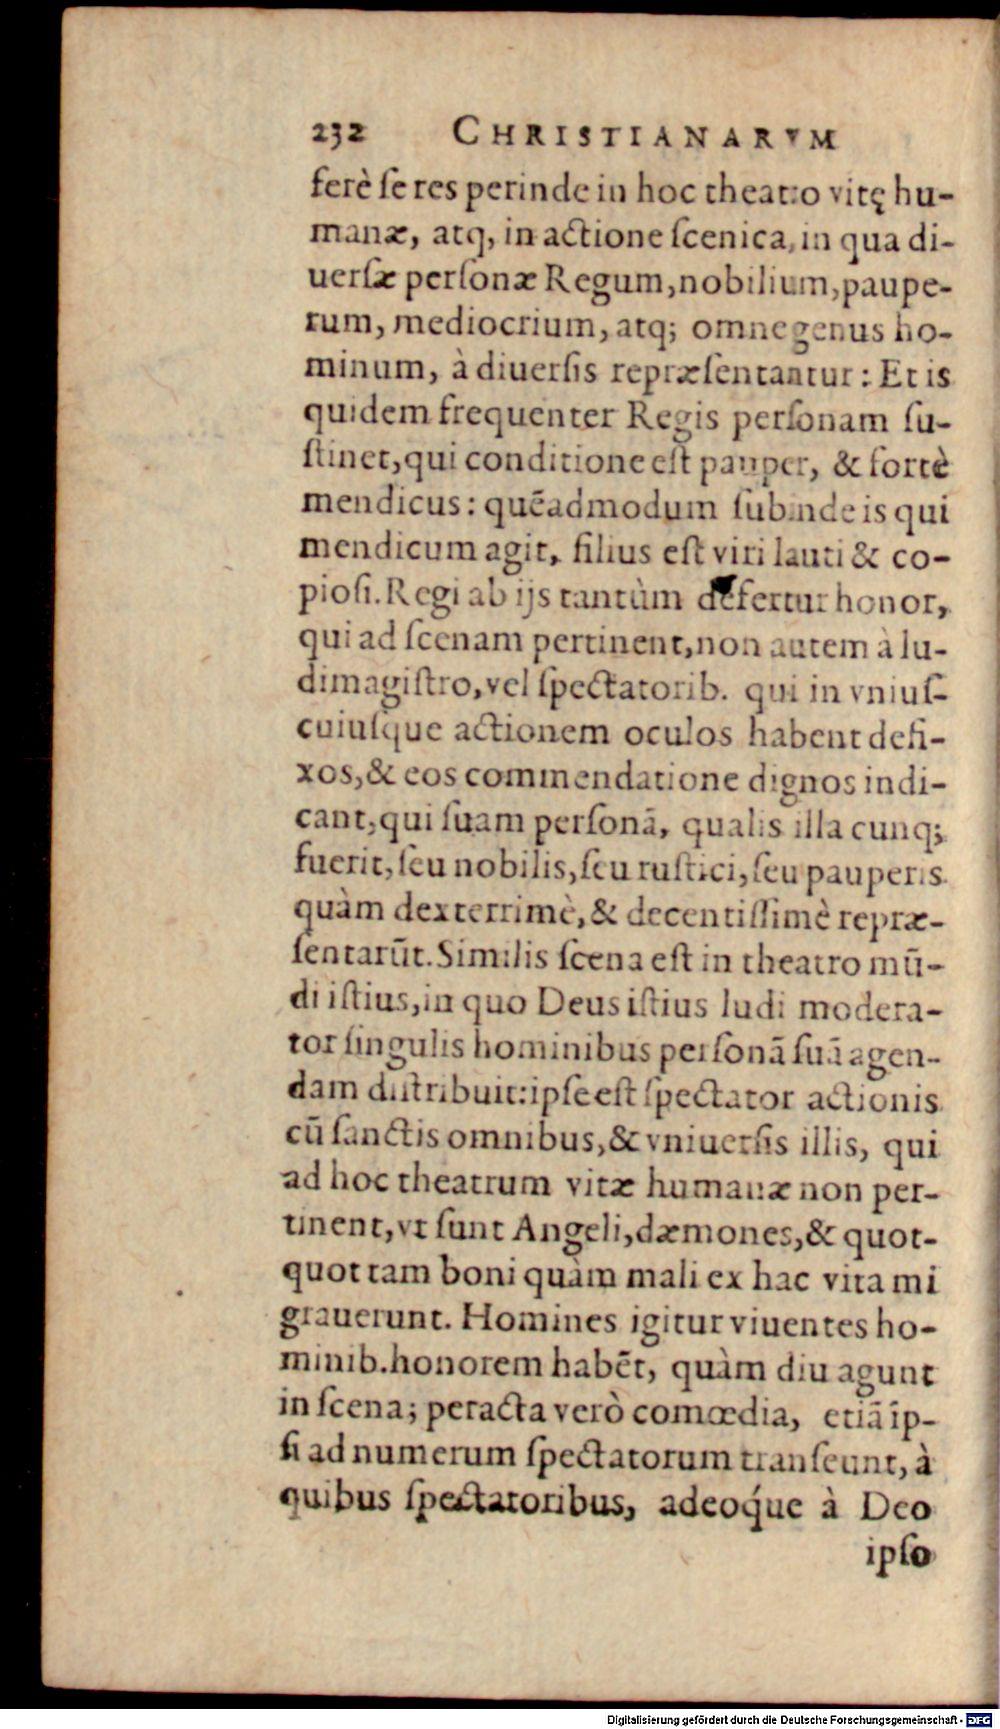 232 CHRISTIANARVM
ferè ſe res perinde in hoc theatro vitę hu-
manæ, atq, in actione ſcenica, in qua di-
uerſæ perſonæ Regum, nobilium, paupe-
rum, mediocrium, atq; omne genus ho-
minum, à diuerſis repræſentantur: Et is
quidem frequenter Regis perſonam ſu-
ſtinet, qui conditione eſt pauper, & fortè
mendicus: quẽadmodum ſubinde is qui
mendicum agit, filius eſt viri lauti & co-
pioſi. Regi ab ijs tantùm defertur honor,
qui ad ſcenam pertinent, non autem à lu-
dimagiſtro, vel ſpectatorib. qui in vniuſ-
cuiuſque actionem oculos habent defi-
xos, & eos commendatione dignos indi-
cant, qui ſuam perſonã, qualis illa cunq;
fuerit, ſeu nobilis, ſeu ruſtici, ſeu pauperis
quàm dexterrimè, & decentiſſimè repræ-
ſentarũt. Similis ſcena eſt in theatro mũ-
di iſtius, in quo Deus iſtius ludi modera-
tor ſingulis hominibus perſonã ſuã agen-
dam diſtribuit: ipſe eſt ſpectator actionis
cũ ſanctis omnibus, & vniuerſis illis, qui
ad hoc theatrum vitæ humanæ non per-
tinent, vt ſunt Angeli, dæmones, & quot-
quot tam boni quàm mali ex hac vita mi
grauerunt. Homines igitur viuentes ho-
minib. honorem habẽt, quàm diu agunt
in ſcena; peracta verò comœdia, etiã ip-
ſi ad numerum ſpectatorum tranſeunt, à
quibus ſpectatoribus, adeoq́ue à Deo
ipſo
Digitalisierung gefördert durch die Deutsche Forschungsgemeinschaft - DFG